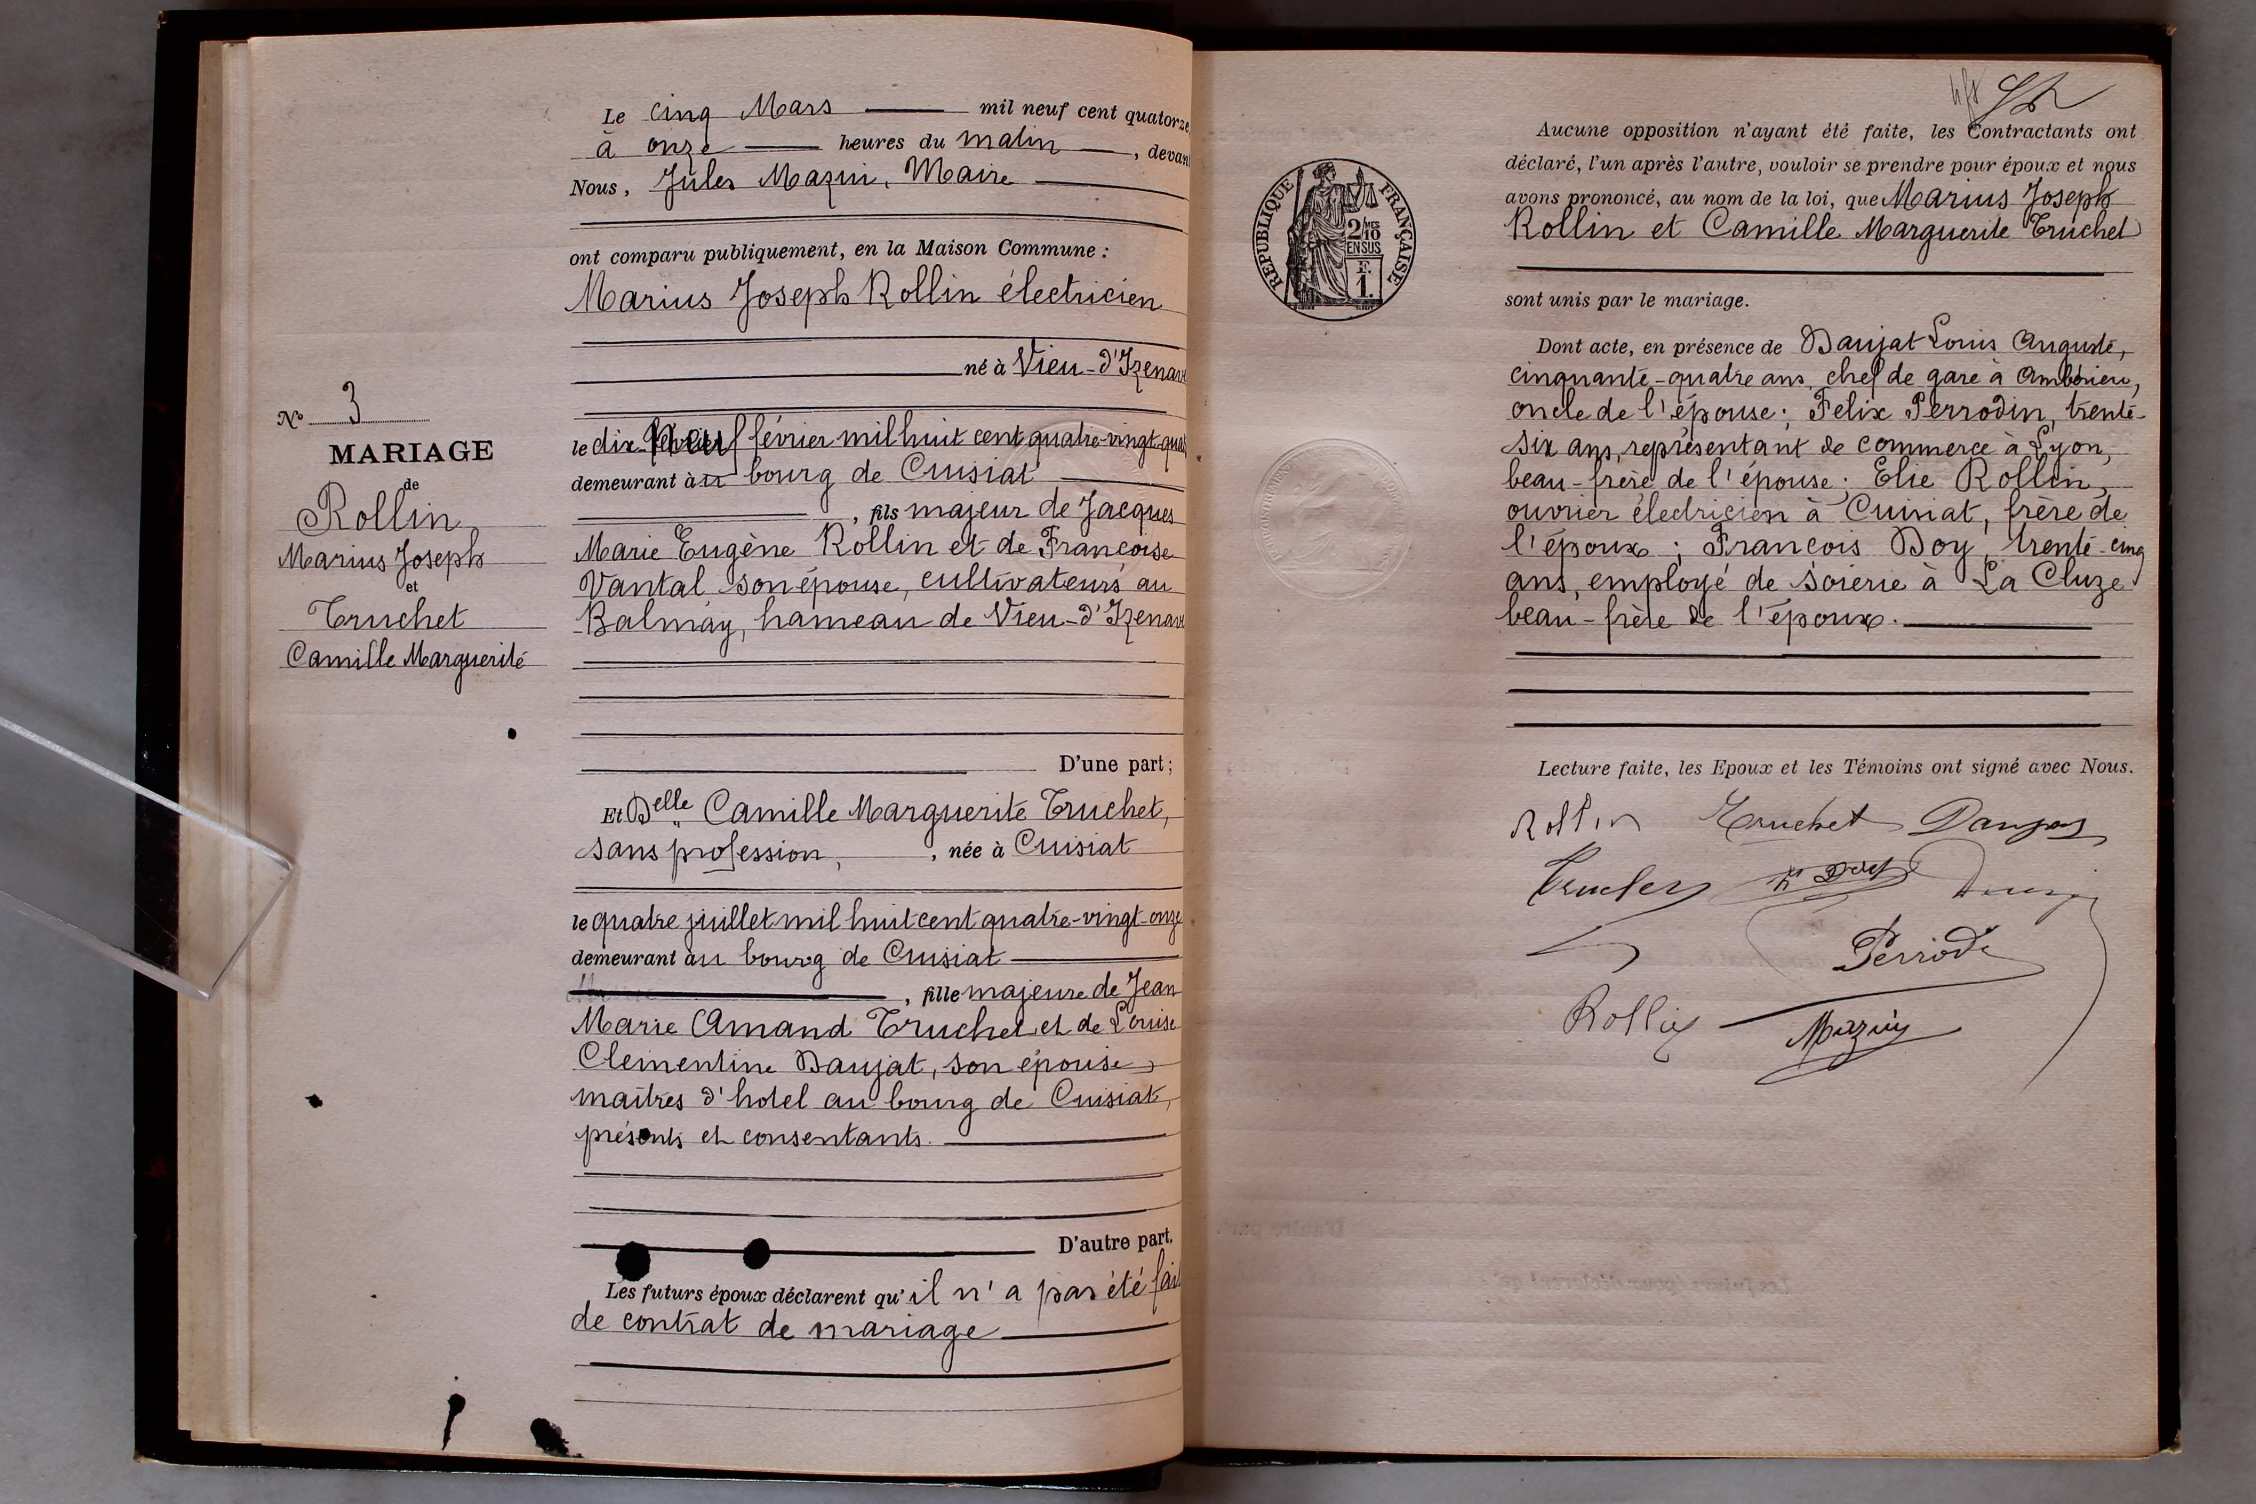 Le cinq Mars mil neuf cent quatorze,
à onze heures du matin, devan
Nous, Jules Mazuy, Maire
ont comparu publiquement, en la Maison Commune :
Marius Joseph Rollin électricien
né à Vieu-d'Izenave
le dix neuf février mil huit cent quatre-vingt-quat
demeurant au bourg de Cuisiat
, fils majeur de Jacques
Marie Eugène Rollin et de Françoise
Vantal son épouse, cultivateurs au
Balmay, hameau de Vieu-d'Izenave
D'une part ;
Et Delle Camille Marguerite Truchet,
sans profession, , née à Cuisiat
le quatre juillet mil huit cent quatre-vingt-onze
demeurant au bourg de Cuisiat
, fille majeure de Jean
Marie Amand Truchet et de Louise
Clementine Daujat, son épouse,
maîtres d'hotel au bourg de Cuisiat,
présents et consentants.
D'autre part.
Les futurs époux déclarent qu'il n'a pas été fait
de contrat de mariage
No 3
MARIAGE
de
Rollin
Marius Joseph
et
Truchet
Camille Marguerite
RÉPUBLIQUE FRANÇAISE
2/10
MES
EN SUS
F.
1.
Aucune opposition n'ayant été faite, les Contractants ont
déclaré, l'un après l'autre, vouloir se prendre pour époux et nous
avons prononcé, au nom de la loi, que Marius Joseph
Rollin et Camille Marguerite Truchet
sont unis par le mariage.
Dont acte, en présence de Daujat Louis Auguste,
cinquante-quatre ans, chef de gare à Ambérieu,
oncle de l'épouse ; Felix Perrodin, trente-
six ans, représentant de commerce à Lyon,
beau-frère de l'épouse ; Elie Rollin,
ouvrier électricien à Cuisiat, frère de
l'époux ; François Doy, trente-cinq
ans, employé de soierie à La Cluze
beau-frère de l'époux.
Lecture faite, les Epoux et les Témoins ont signé avec Nous.
Rollin Truchet Daujat
Truchet
Perrodin
Rollin Mazuy